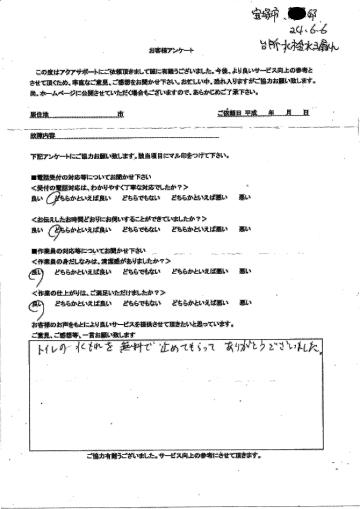 宝塚市、 邸
24.6.6
台所水栓水漏れ
お客様アンケート
この度はアクアサポートにご依頼頂きまして誠に有難うございました。今後、より良いサービス向上の参考と
させて頂くため、率直なご意見、ご感想をお聞かせ下さい。お忙しい中、恐れ入りますがご協力お願い致します。
尚、ホームページに公開させていただく場合もございますので、あらかじめご了承下さい。
居住地 市 ご依頼日 平成 年 月 日
故障内容
下記アンケートにご協力お願い致します。該当項目にマル印をつけて下さい。
■電話受付の対応等についてお聞かせ下さい
<受付の電話対応は、わかりやすく丁寧な対応でしたか?>
良い どちらかといえば良い どちらでもない どちらかといえば悪い 悪い
<お伝えしたお時間どおりにお伺いすることができていましたか?>
良い どちらかといえば良い どちらでもない どちらかといえば悪い 悪い
■作業員の対応等についてお聞かせ下さい
<作業員の身だしなみは、清潔感がありましたか?>
良い どちらかといえば良い どちらでもない どちらかといえば悪い 悪い
<作業の仕上がりは、ご満足いただけましたか?>
良い どちらかといえば良い どちらでもない どちらかといえば悪い 悪い
お客様のお声をもとにより良いサービスを提供させて頂きたいと思っています。
ご意見、ご感想等、一言お願い致します
トイレの水もれを無料で止めてもらってありがとうございました。
ご協力有難うございました。サービス向上の参考にさせて頂きます。